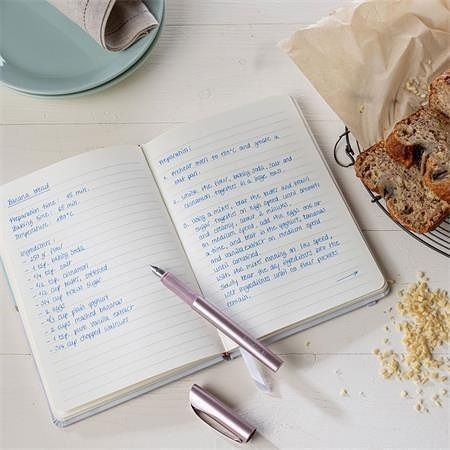 Banana bread
Preparation time: 15 min.
Baking time: 65 min.
Temperature: 180°C
Ingredients:
flour
1 tsp. baking soda
salt
1/2 tsp. cinnamon
1/2 cup butter, softened
3/4 cup brown sugar
2 eggs
1/2 cup plain yoghurt
2 cups mashed bananas
1 tsp. pure vanilla extract
3/4 cup chopped walnuts
Preparation:
1. Preheat oven to 180°C and grease a
loaf pan.
2. Whisk the flour, baking soda, salt and
cinnamon together in a large bowl.
3. Using a mixer, beat the butter and brown
sugar together on high speed until smooth
and creamy, about 2 minutes.
on medium speed, add the eggs one at
a time, and beat in the yoghurt, bananas
and vanilla extract on medium speed
until combined.
With the mixer running on low speed,
slowly beat the dry ingredients into the
wet ingredients until no flour pockets
remain.